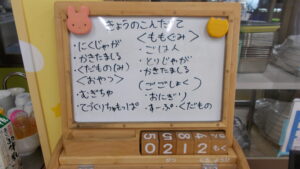 きょうのこんだて
・にくじゃが
・かきたまじる
＜くだもの(み)＞
＜おやつ＞
・むぎちゃ
・てづくりちゅもっぱ
＜ももぐみ＞
・ごはん
・とりじゃが
・かきたまじる
(ごごしょく)
・おにぎり
・すーぷ・くだもの
0 2 1 2 もく
がつ にち ようび